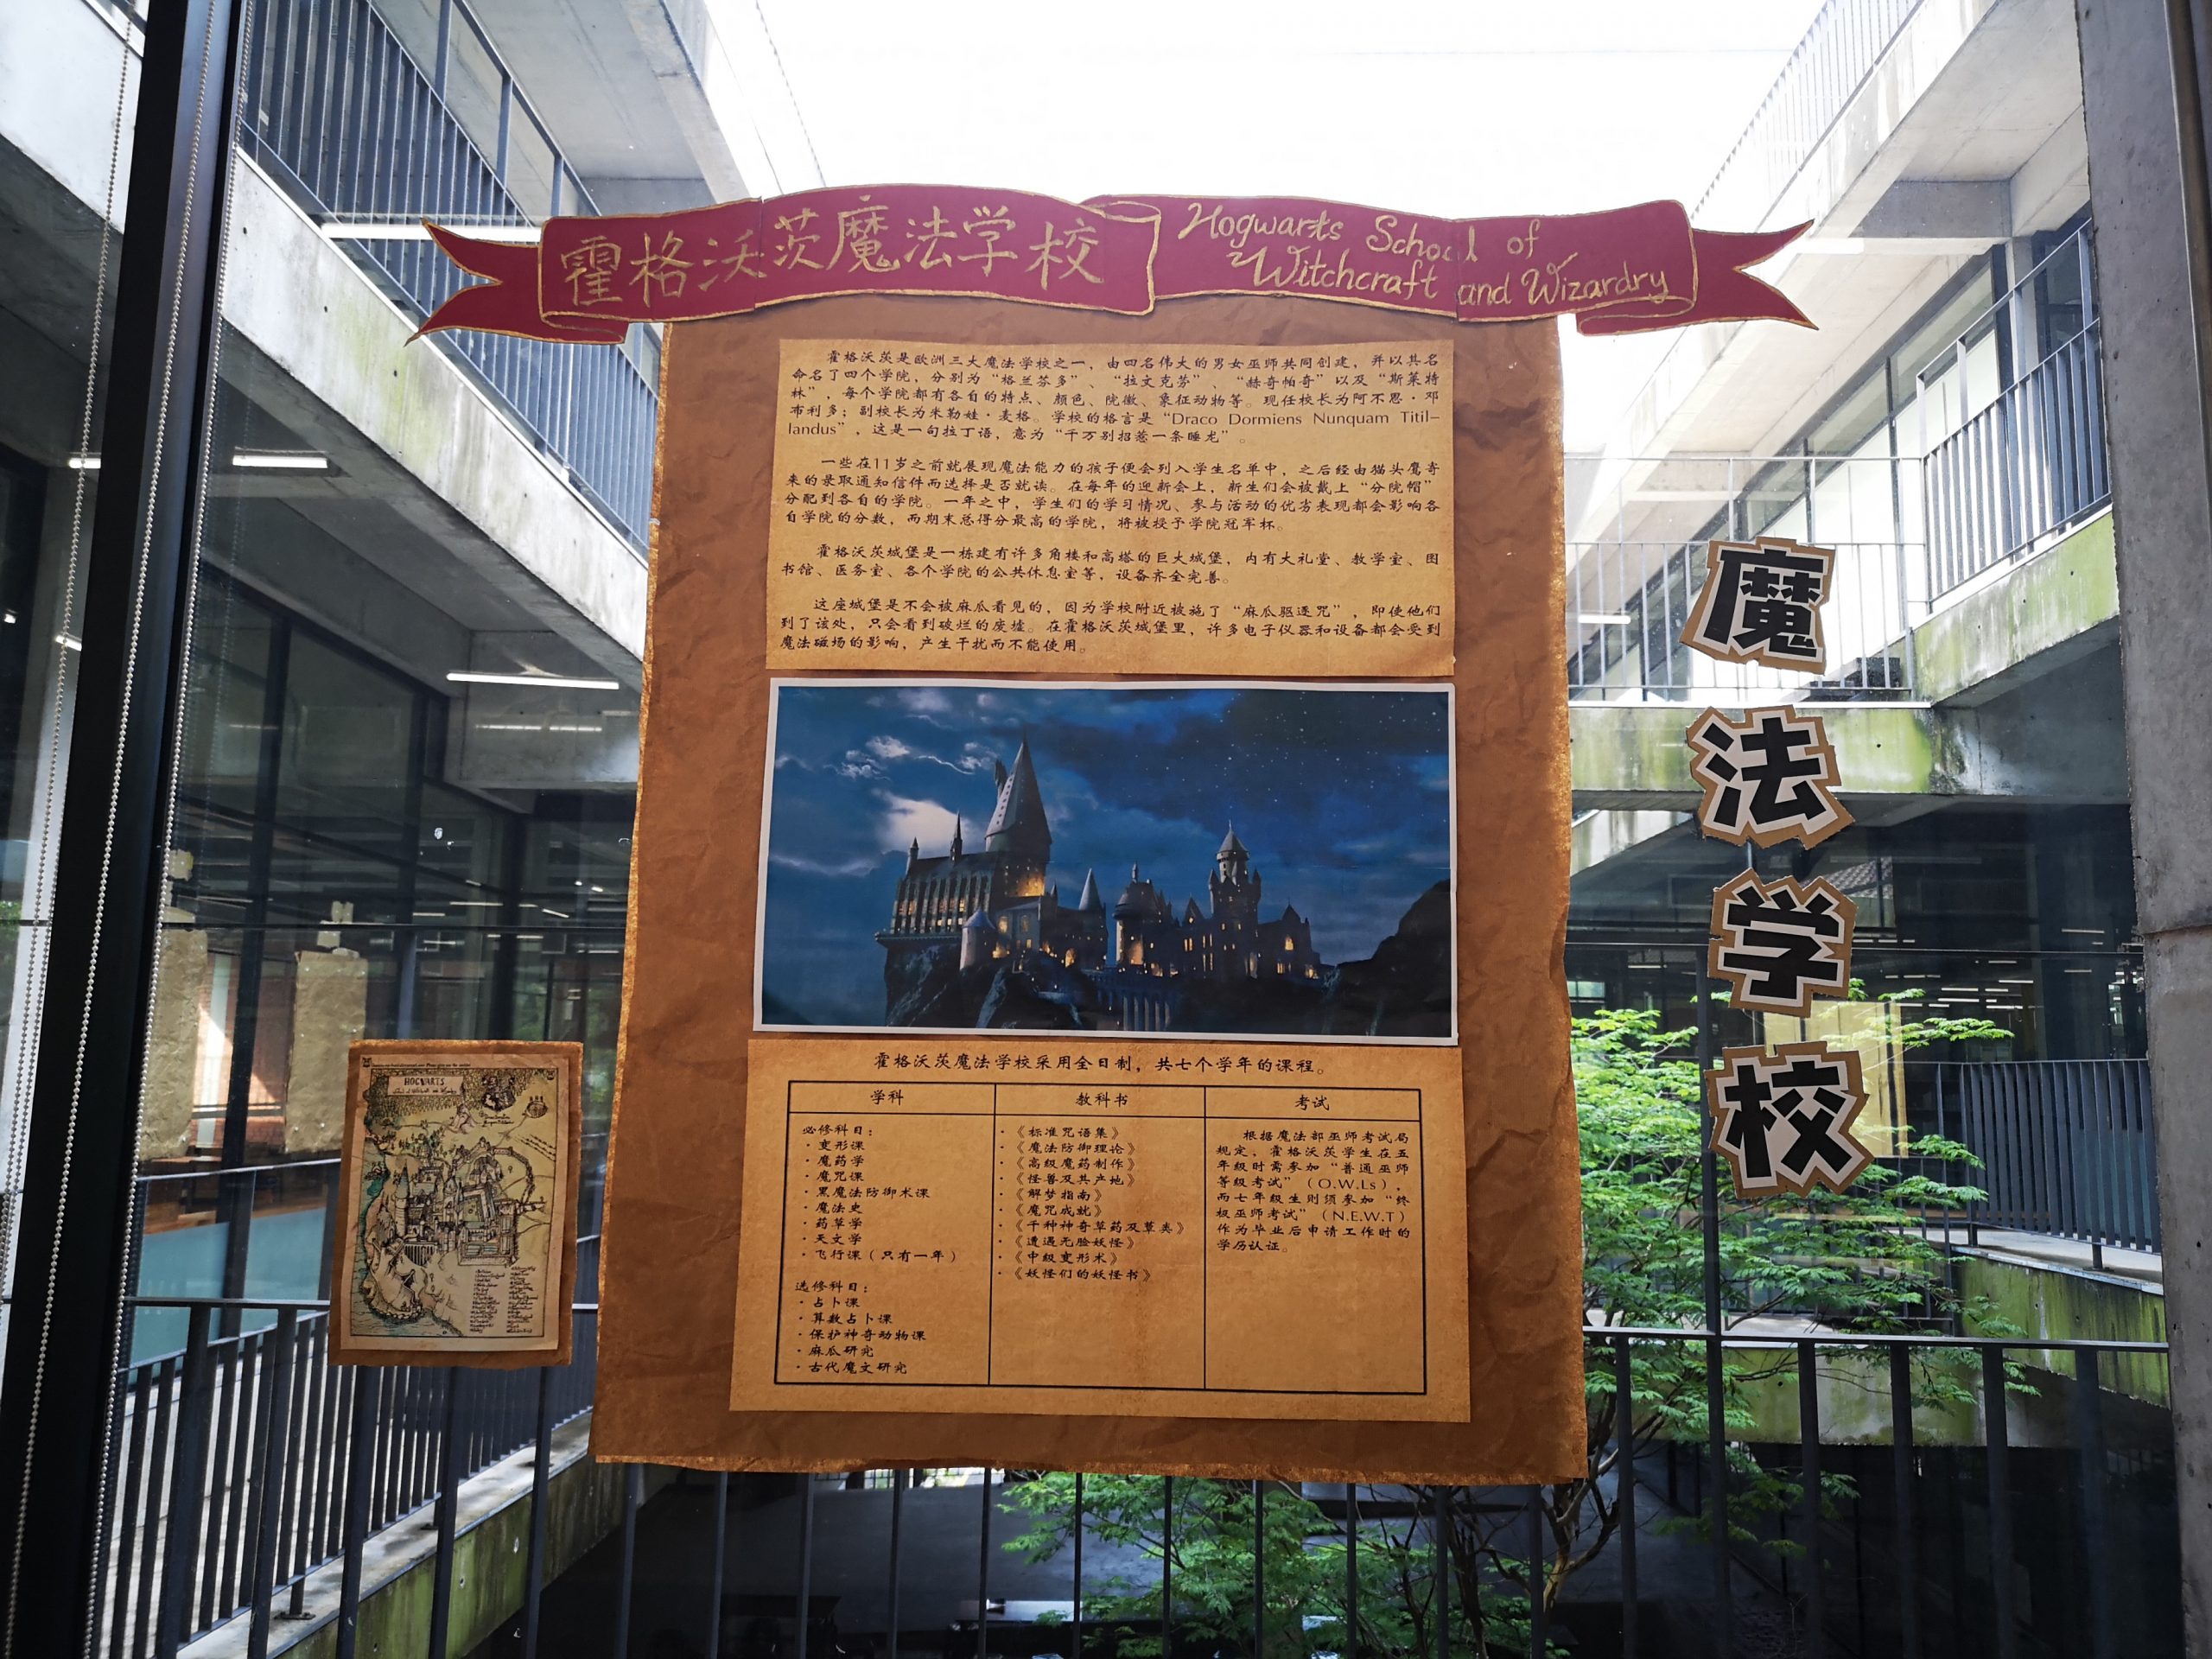 霍格沃茨魔法学校
Hogwarts School of
Witchcraft and Wizardry
霍格沃茨是欧洲三大魔法学校之一，由四名伟大的男女巫师共同创建，并以其名
命名了四个学院，分别为“格兰芬多”、“拉文克劳”、“赫奇帕奇”以及“斯莱特
林”，每个学院都有各自的特点、颜色、院徽、象征动物等。现任校长为阿不思·邓
布利多；副校长为米勒娃·麦格。学校的格言是“Draco Dormiens Nunquam Titil-
landus”，这是一句拉丁语，意为“千万别招惹一条睡龙”。
一些在11岁之前就展现魔法能力的孩子便会列入学生名单中，之后经由猫头鹰寄
来的录取通知信件而选择是否就读。在每年的迎新会上，新生们会被戴上“分院帽”
分配到各自的学院。一年之中，学生们的学习情况、参与活动的优劣表现都会影响各
自学院的分数，而期末总得分最高的学院，将被授予学院冠军杯。
霍格沃茨城堡是一栋建有许多角楼和高塔的巨大城堡，内有大礼堂、教学室、图
书馆、医务室、各个学院的公共休息室等，设备齐全完善。
这座城堡是不会被麻瓜看见的，因为学校附近被施了“麻瓜驱逐咒”，即使他们
到了该处，只会看到破烂的废墟。在霍格沃茨城堡里，许多电子仪器和设备都会受到
魔法磁场的影响，产生干扰而不能使用。
霍格沃茨魔法学校采用全日制，共七个学年的课程。
学科
必修科目：
·变形课
·魔药学
·魔咒课
·黑魔法防御术课
·魔法史
·药草学
·天文学
·飞行课（只有一年）
选修科目：
·占卜课
·算数占卜课
·保护神奇动物课
·麻瓜研究
·古代魔文研究
教科书
·《标准咒语集》
·《魔法防御理论》
·《高级魔药制作》
·《怪兽及其产地》
·《解梦指南》
·《魔咒成就》
·《千种神奇草药及蕈类》
·《遭遇无脸妖怪》
·《中级变形术》
·《妖怪们的妖怪书》
考试
根据魔法部巫师考试局
规定，霍格沃茨学生在五
年级时需参加“普通巫师
等级考试”（O.W.Ls），
而七年级生则须参加“终
极巫师考试”（N.E.W.T）
作为毕业后申请工作时的
学历认证。
魔
法
学
校
HOGWARTS